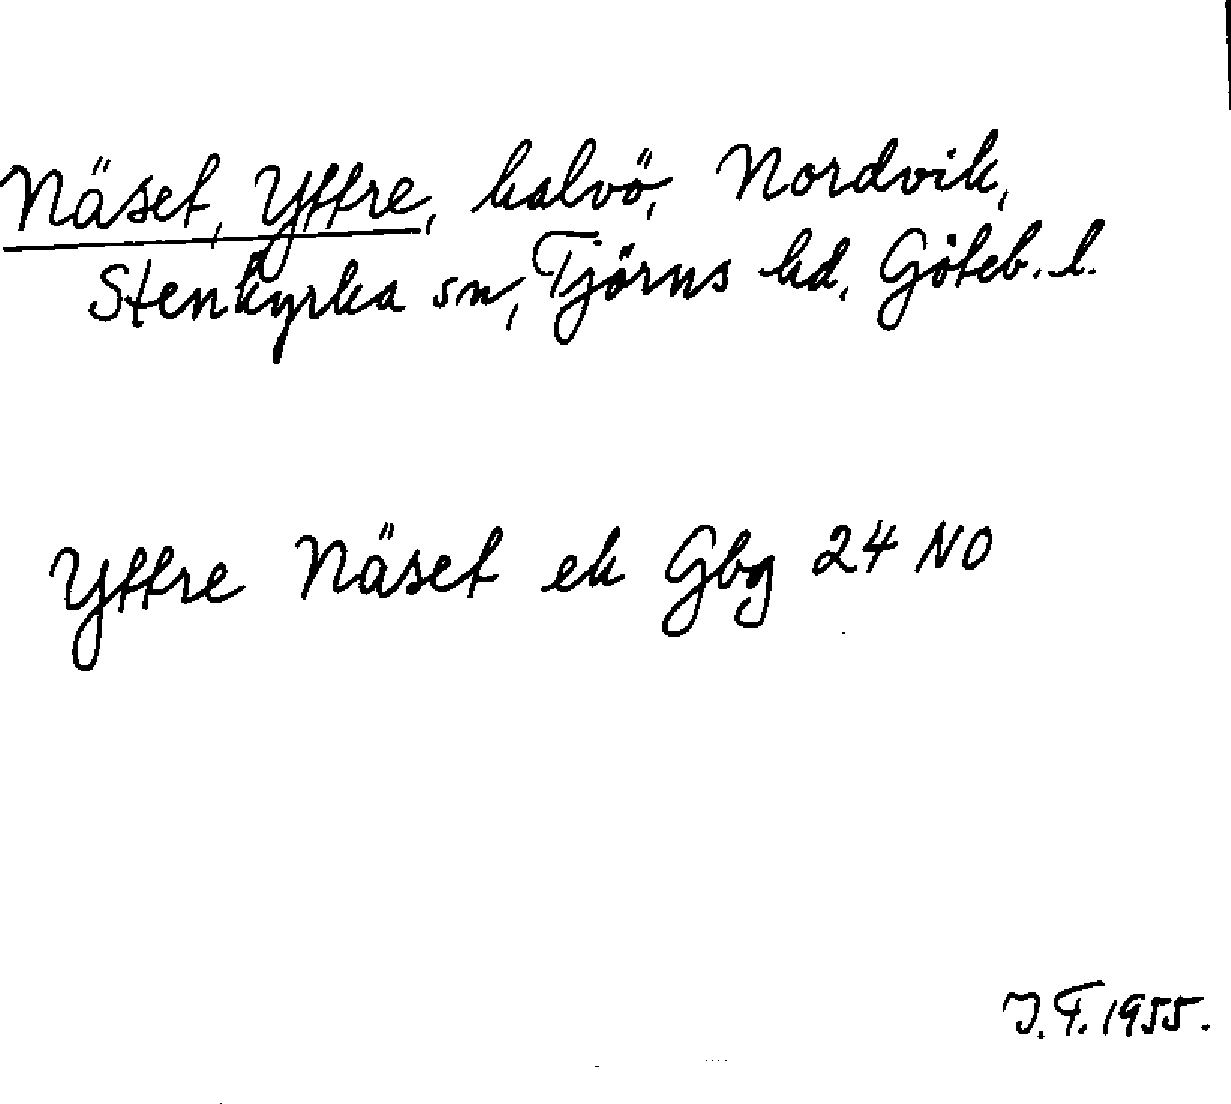 Näset, Yttre, halvö, Nordvik,
Stenkyrka sn, Tjörns hd, Göteb. l.
Yttre Näset ek Gbg 24 NO
J.F. 1955.